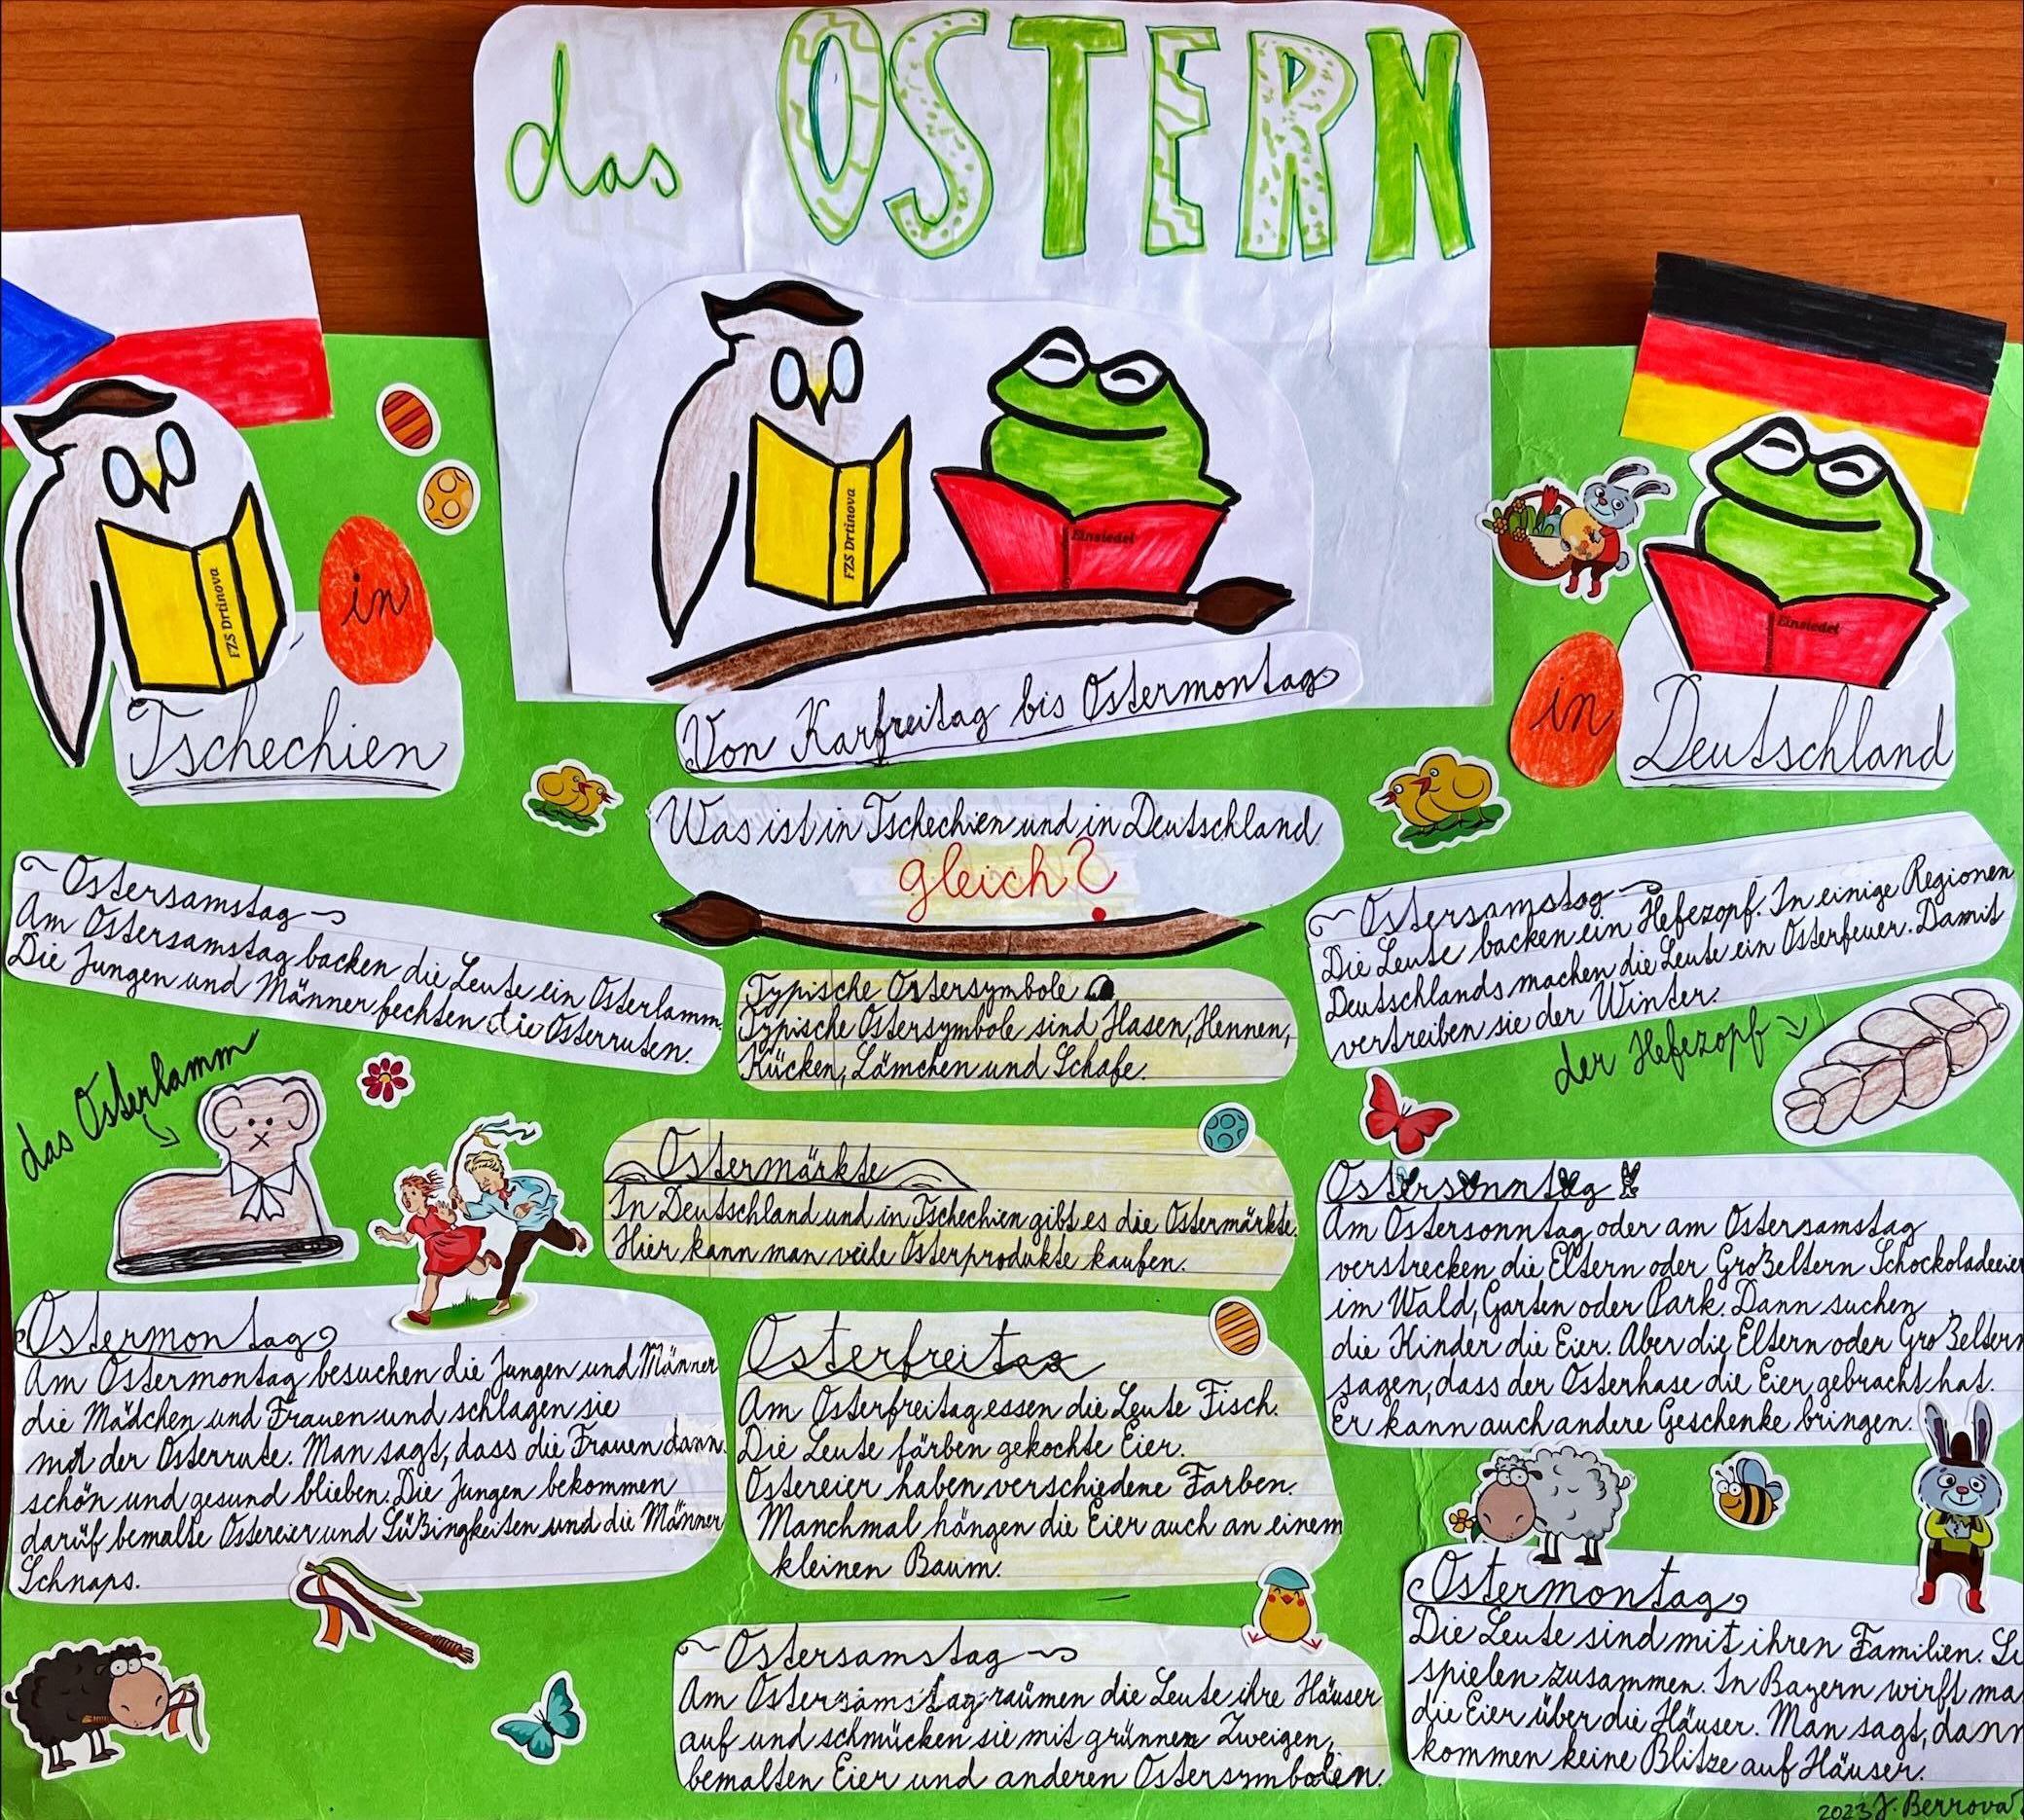 das OSTERN
FZS Drtinova
Einsiedel
FZS Drtinova
in
Tschechien
Einsiedel
in
Deutschland
Von Karfreitag bis Ostermontag
Was ist in Tschechien und in Deutschland
gleich?
Ostersamstag
Am Ostersamstag backen die Leute ein Osterlamm.
Die Jungen und Männer fechten die Osterruten.
das Osterlamm
Ostermontag
Am Ostermontag besuchen die Jungen und Männer
die Mädchen und Frauen und schlagen sie
mit der Osterrute. Man sagt, dass die Frauen dann
schön und gesund blieben. Die Jungen bekommen
darüf bemalte Ostereier und Süßingkeiten und die Männer
Schnaps.
Typische Ostersymbole
Typische Ostersymbole sind Hasen, Hennen,
Kücken, Lämchen und Schafe.
Ostermärkte
In Deutschland und in Tschechien gibt es die Ostermärkte.
Hier kann man veile Osterprodukte kaufen.
Osterfreitag
Am Osterfreitag essen die Leute Fisch.
Die Leute färben gekochte Eier.
Ostereier haben verschiedene Farben.
Manchmal hängen die Eier auch an einem
kleinen Baum.
Ostersamstag
Am Ostersamstag raümen die Leute ihre Häuser
auf und schmücken sie mit grünnen Zweigen,
bemalten Eier und anderen Ostersymbolen.
Ostersamstag
Die Leute backen ein Hefezopf. In einige Regionen
Deutschlands machen die Leute ein Osterfeuer. Damit
vertreiben sie der Winter.
der Hefezopf
Ostersonntag
Am Ostersonntag oder am Ostersamstag
verstrecken die Eltern oder Großeltern Schockoladeeier
im Wald, Garten oder Park. Dann suchen
die Kinder die Eier. Aber die Eltern oder Großeltern
sagen, dass der Osterhase die Eier gebracht hat.
Er kann auch andere Geschenke bringen.
Ostermontag
Die Leute sind mit ihren Familien.
spielen zusammen. In Bayern wirft
die Eier über die Häuser. Man sagt, dann
kommen keine Blitze auf Häuser.
2023 J. Berrova